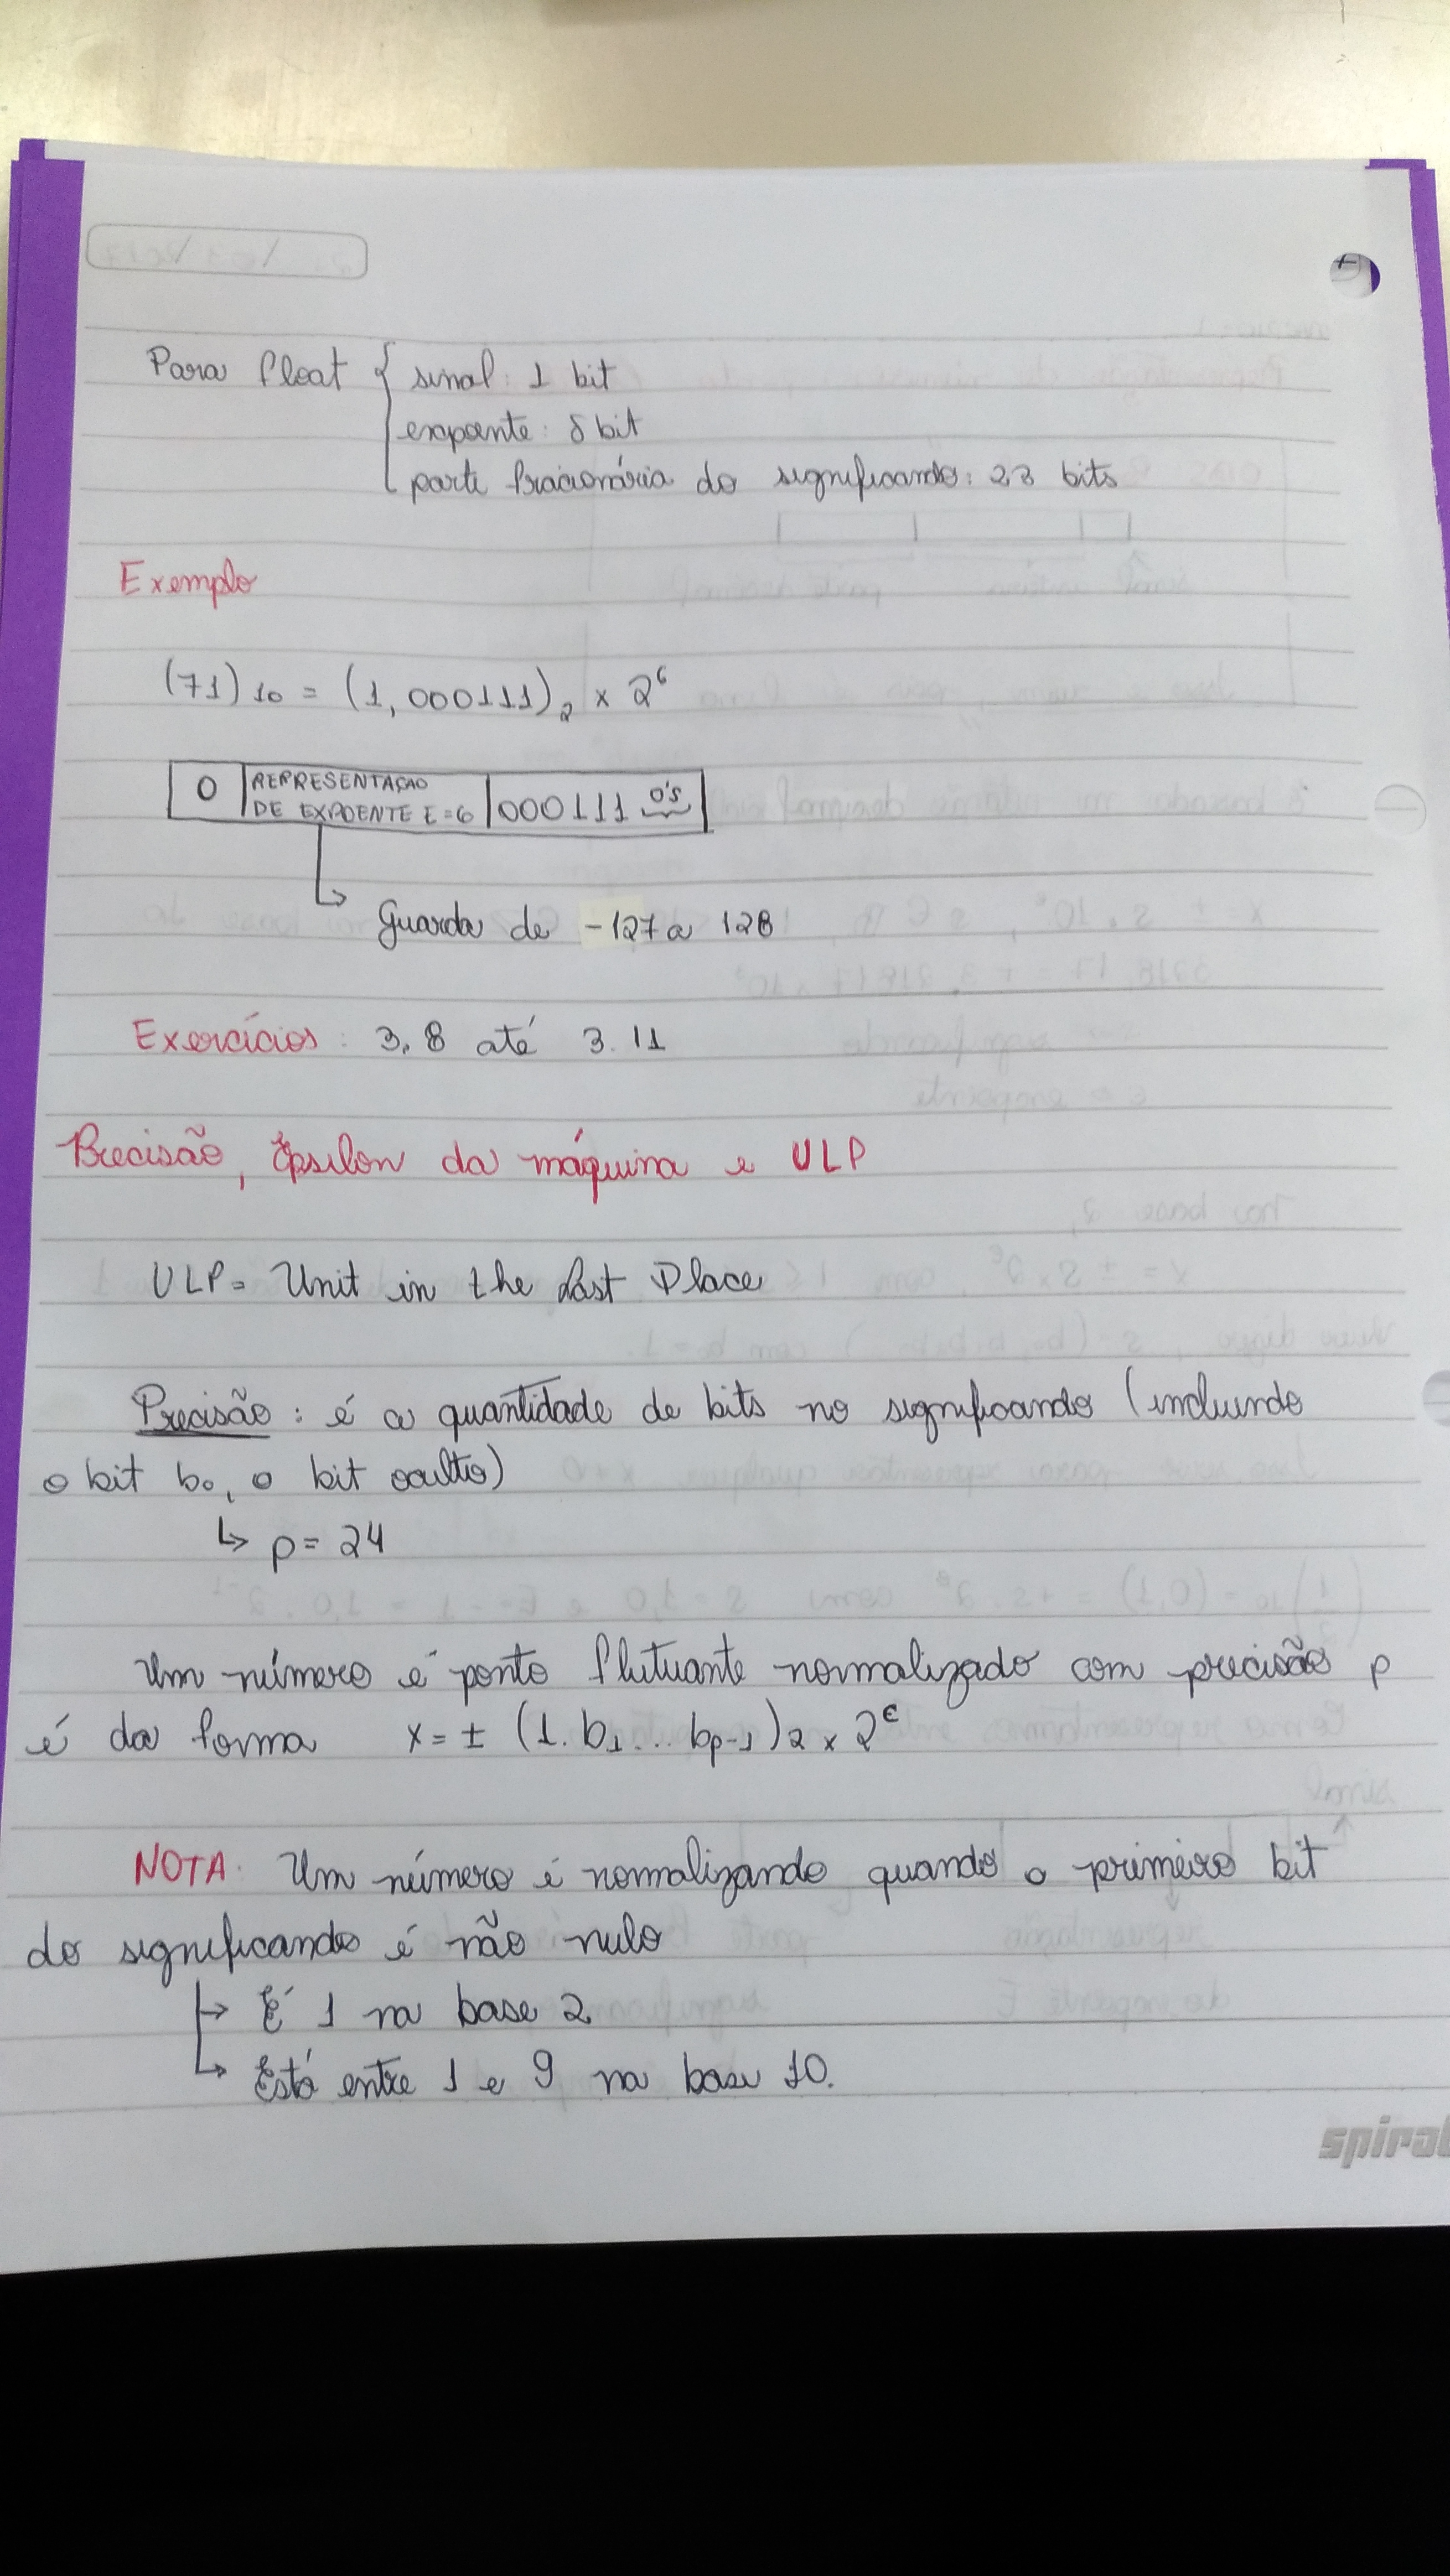 Para float { sinal: 1 bit
expoente: 8 bit
parte fracionária do significando: 23 bits
Exemplo
(71)10 = (1,000111)2 x 2^6
0 | REPRESENTAÇÃO DE EXPOENTE E=6 | 000111 0's
↳ Guarda de -127 a 128
Exercícios: 3.8 até 3.11
Precisão, Épsilon da máquina e ULP
ULP = Unit in the Last Place
Precisão: é a quantidade de bits no significando (incluindo
o bit b0, o bit oculto)
↳ p = 24
Um número é ponto flutuante normalizado com precisão p
é da forma x = ± (1.b1...bp-1)2 x 2^E
NOTA: Um número é normalizando quando o primeiro bit
do significando é não nulo
↳ É 1 na base 2
↳ Está entre 1 e 9 na base 10.
spiral